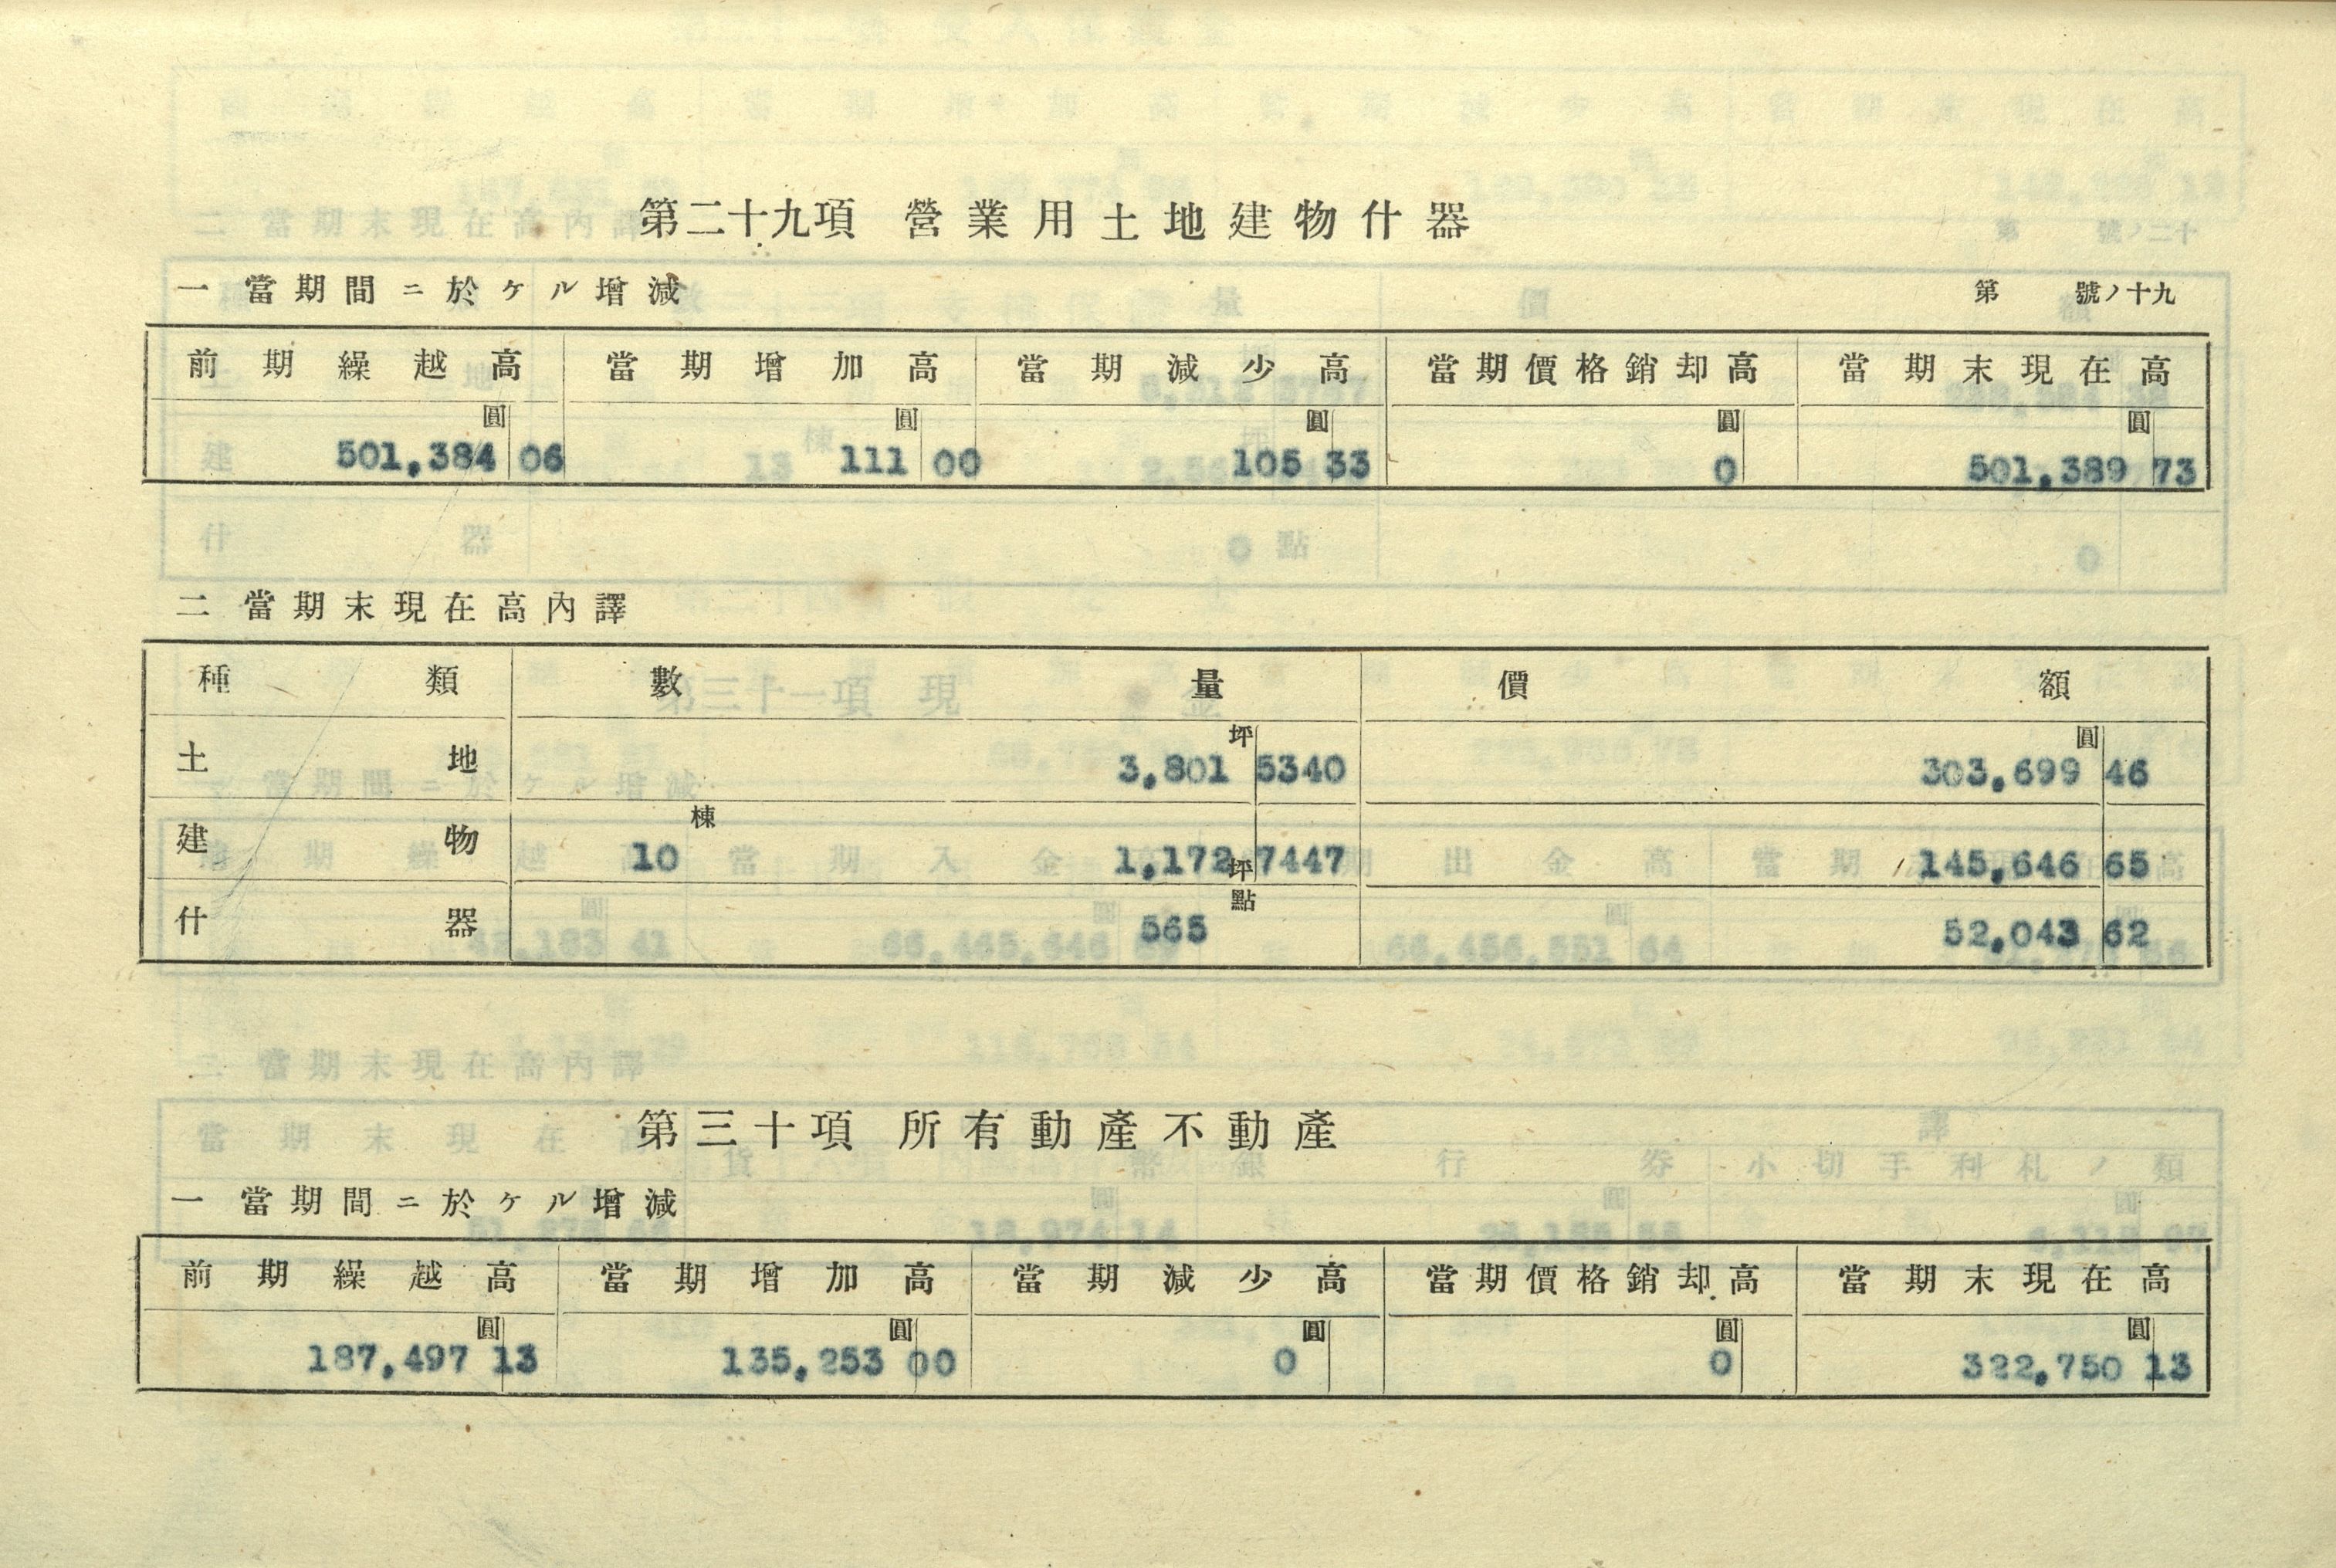 第二十九項 營業用土地建物什器
一 當期間ニ於ケル增減 第 號ノ十九
前期繰越高 當期增加高 當期減少高 當期價格銷却高 當期末現在高
圓 圓 圓 圓 圓
501,384 06 111 00 105 33 0 501,389 73
二 當期末現在高內譯
種類 數量 價額
土地 3,801坪5340 303,699圓46
建物 10棟 1,172坪7447 145,646 65
什器 565點 52,043 62
第三十項 所有動產不動產
一 當期間ニ於ケル增減
前期繰越高 當期增加高 當期減少高 當期價格銷却高 當期末現在高
圓 圓 圓 圓 圓
187,497 13 135,253 00 0 0 322,750 13